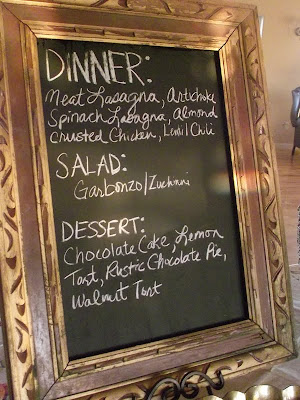 DINNER:
Meat Lasagna, Artichoke
Spinach Lasagna, Almond
Crusted Chicken, Lentil Chili
SALAD:
Garbonzo/Zuchinni
DESSERT:
Chocolate Cake, Lemon
Tart, Rustic Chocolate Pie,
Walnut Tart